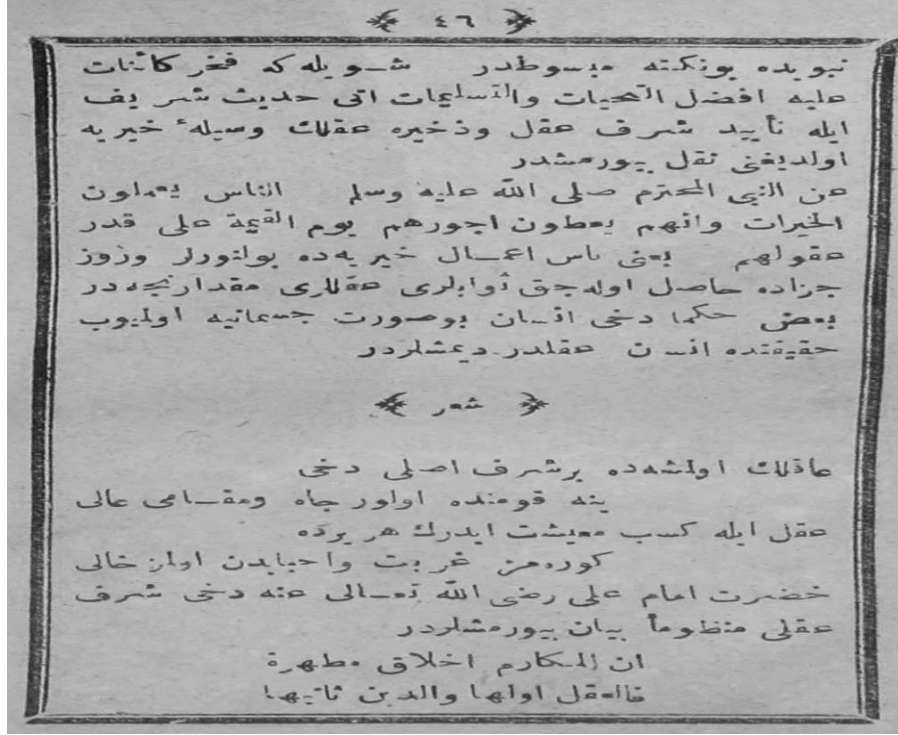 ٤٦
نبويده بونكته مبسوطدر شويله كه فخر كائنات
عليه افضل التحيات والتسليمات اتى حديث شريف
ايله تأييد شرف عقل وذخيره عقلك وسيلهٔ خيريه
اولديغنى نقل بيورمشدر
عن النبى المحترم صلى الله عليه وسلم الناس يعملون
الخيرات وانهم يعطون اجورهم يوم القيمة على قدر
عقولهم يعنى ناس اعمال خيريه‌ده بولنورلر وزوز
جزاده حاصل اوله‌جق ثوابلرى عقللرى مقدارنجه‌در
بعض حكما دخى انسان بوصورت جسمانيه اوليوب
حقيقتده انسان عقلدر ديمشلردر
شعر
عاقلك اولمشه‌ده برشرف اصلى دخى
ينه قومنده اولور جاه ومقامى عالى
عقل ايله كسب معيشت ايدرك هر يرده
كوره‌مز غربت واحبابدن اولان خالى
حضرت امام على رضى الله تعالى عنه دخى شرف
عقلى منظوماً بيان بيورمشلردر
ان المكارم اخلاق مطهرة
فالعقل اولها والدين ثانيها